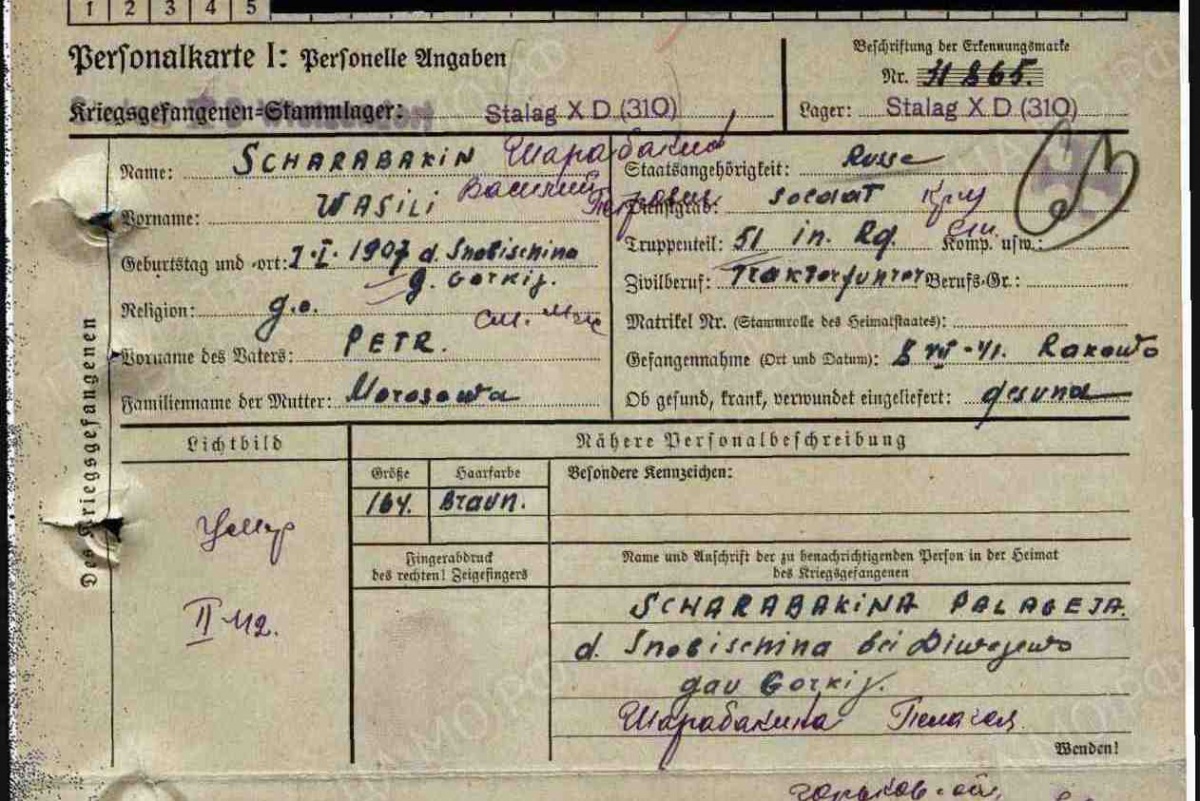 1 2 3 4 5
Personalkarte I: Personelle Angaben
Kriegsgefangenen-Stammlager: Stalag X D (310)
Beschriftung der Erkennungsmarke
Nr.
Lager: Stalag X D (310)
Des Kriegsgefangenen
Name: SCHARABAKIN Шарабакин
Vorname: WASILI Василий
Geburtstag und -ort: 7.I.1907 d. Snobischina
g. Gorkij.
Religion: g.o.
Vorname des Vaters: PETR.
Familienname der Mutter: Morosowa
Staatsangehörigkeit: Russe
Dienstgrad: soldat
Truppenteil: 51 in. Rg. Komp. usw.:
Zivilberuf: Trakterfuhrer Berufs-Gr.:
Matrikel Nr. (Stammrolle des Heimatstaates):
Gefangennahme (Ort und Datum): 8 VII -41. Rakowo
Ob gesund, krank, verwundet eingeliefert: gesund
Lichtbild
II 42.
Nähere Personalbeschreibung
Größe
164.
Haarfarbe
Braun.
Besondere Kennzeichen:
Fingerabdruck
des rechten! Zeigefingers
Name und Anschrift der zu benachrichtigenden Person in der Heimat
des Kriegsgefangenen
SCHARABAKINA PALAGEJA.
d. Snobischina bei Diwejewo
gau Gorkij.
Шарабакина Пелагея
Wenden!